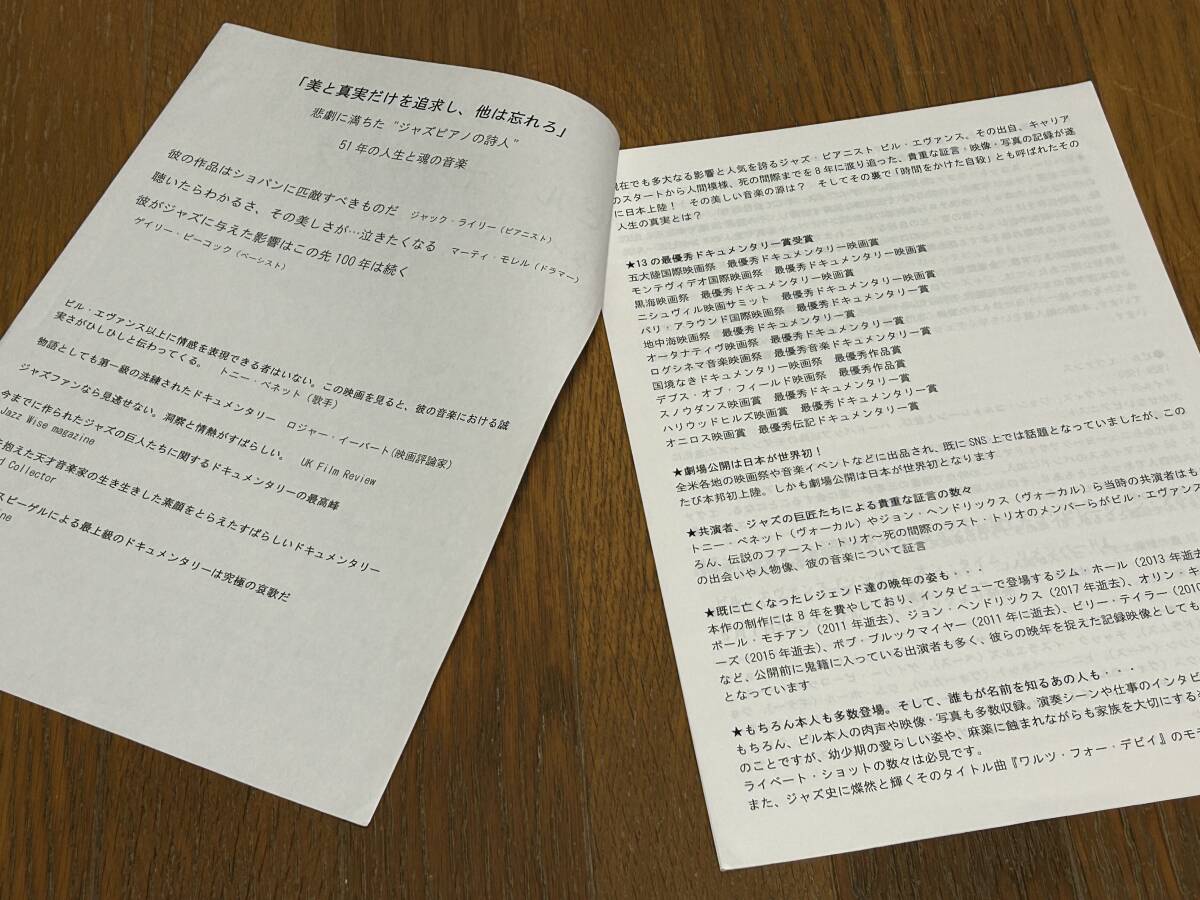 「美と真実だけを追求し、他は忘れろ」
悲劇に満ちた “ジャズピアノの詩人”
51年の人生と魂の音楽
彼の作品はショパンに匹敵すべきものだ ジャック・ライリー(ピアニスト)
聴いたらわかるさ、その美しさが…泣きたくなる マーティ・モレル(ドラマー)
彼がジャズに与えた影響はこの先100年は続く
ゲイリー・ピーコック(ベーシスト)
ビル・エヴァンス以上に情感を表現できる者はいない。この映画を見ると、彼の音楽における誠
実さがひしひしと伝わってくる。 トニー・ベネット(歌手)
物語としても第一級の洗練されたドキュメンタリー ロジャー・イーバート(映画評論家)
ジャズファンなら見逃せない。洞察と情熱がすばらしい。 UK Film Review
今までに作られたジャズの巨人たちに関するドキュメンタリーの最高峰
Jazz Wise magazine
を抱えた天才音楽家の生き生きした素顔をとらえたすばらしいドキュメンタリー
Collector
スピーゲルによる最上級のドキュメンタリーは究極の哀歌だ
ine
現在でも多大なる影響と人気を誇るジャズ・ピアニスト ビル・エヴァンス。その出自、キャリア
のスタートから人間模様、死の間際までを8年に渡り追った、貴重な証言・映像・写真の記録が遂
に日本上陸! その美しい音楽の源は? そしてその裏で「時間をかけた自殺」とも呼ばれたその
人生の真実とは?
★13の最優秀ドキュメンタリー賞受賞
五大陸国際映画祭 最優秀ドキュメンタリー映画賞
モンテヴィデオ国際映画祭 最優秀ドキュメンタリー映画賞
黒海映画祭 最優秀ドキュメンタリー映画賞
ニシュヴィル映画サミット 最優秀ドキュメンタリー映画賞
パリ・アラウンド国際映画祭 最優秀ドキュメンタリー賞
地中海映画祭 最優秀ドキュメンタリー賞
オータナティヴ映画祭 最優秀ドキュメンタリー賞
ログシネマ音楽映画祭 最優秀音楽ドキュメンタリー賞
国境なきドキュメンタリー映画祭 最優秀作品賞
デプス・オブ・フィールド映画祭 最優秀作品賞
スノウダンス映画賞 最優秀ドキュメンタリー賞
ハリウッドヒルズ映画賞 最優秀ドキュメンタリー賞
オニロス映画賞 最優秀伝記ドキュメンタリー賞
★劇場公開は日本が世界初!
全米各地の映画祭や音楽イベントなどに出品され、既にSNS上では話題となっていましたが、この
たび本邦初上陸。しかも劇場公開は日本が世界初となります
★共演者、ジャズの巨匠たちによる貴重な証言の数々
トニー・ベネット(ヴォーカル)やジョン・ヘンドリックス(ヴォーカル)ら当時の共演者はも
ろん、伝説のファースト・トリオ~死の間際のラスト・トリオのメンバーらがビル・エヴァンス
の出会いや人物像、彼の音楽について証言
★既に亡くなったレジェンド達の晩年の姿も・・・
本作の制作には8年を費やしており、インタビューで登場するジム・ホール(2013年逝去
ポール・モチアン(2011年逝去)、ジョン・ヘンドリックス(2017年逝去)、オリン・キ
ーズ(2015年逝去)、ボブ・ブルックマイヤー(2011年に逝去)、ビリー・テイラー(2010
など、公開前に鬼籍に入っている出演者も多く、彼らの晩年を捉えた記録映像としても
となっています
★もちろん本人も多数登場。そして、誰もが名前を知るあの人も・・・
もちろん、ビル本人の肉声や映像・写真も多数収録。演奏シーンや仕事のインタビ
のことですが、幼少期の愛らしい姿や、麻薬に蝕まれながらも家族を大切にする
ライベート・ショットの数々は必見です。
また、ジャズ史に燦然と輝くそのタイトル曲『ワルツ・フォー・デビイ』のモデ